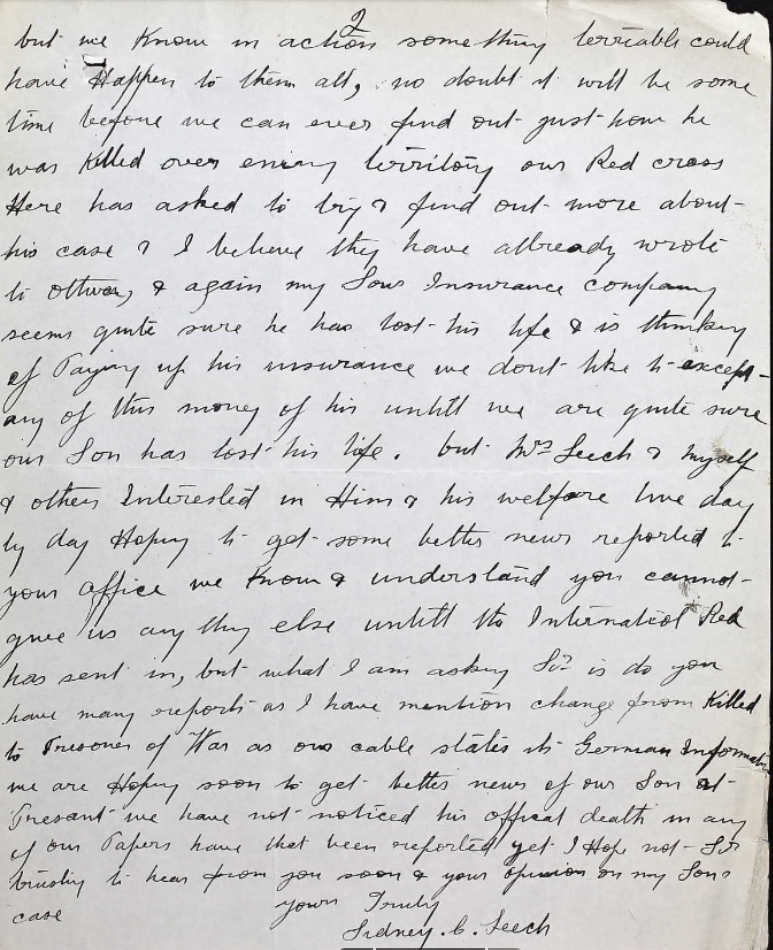 2
but we Know in action something terriable could
have Happen to them all, no doubt it will be some
time before we can ever find out just how he
was Killed over enimy territory our Red cross
Here has asked to try & find out more about
his case & I believe they have allready wrote
to ottwa, & again my Sons Insurance company
seems quite sure he has lost his life & is thinking
of Paying up his insurance we dont like to except
any of this money of his untill we are quite sure
our Son has lost his life. but Mrs Leech & myself
& others Interested in Him & his welfare live day
by day Hoping to get some better news reported to
your office we Know & understand you cannot
give us any thing else untill the Internatiol Red
has sent in, but what I am asking Sir is do you
have many reports as I have mention change from Killed
to Presoner of War as our cable states its German Informati
we are Hoping soon to get better news of our Son at
Presant we have not noticed his offical death in any
of our Papers have that been reported yet I Hope not Sir
trusting to hear from you soon & your opinion on my Sons
case
yours Truly
Sidney. C. Leech